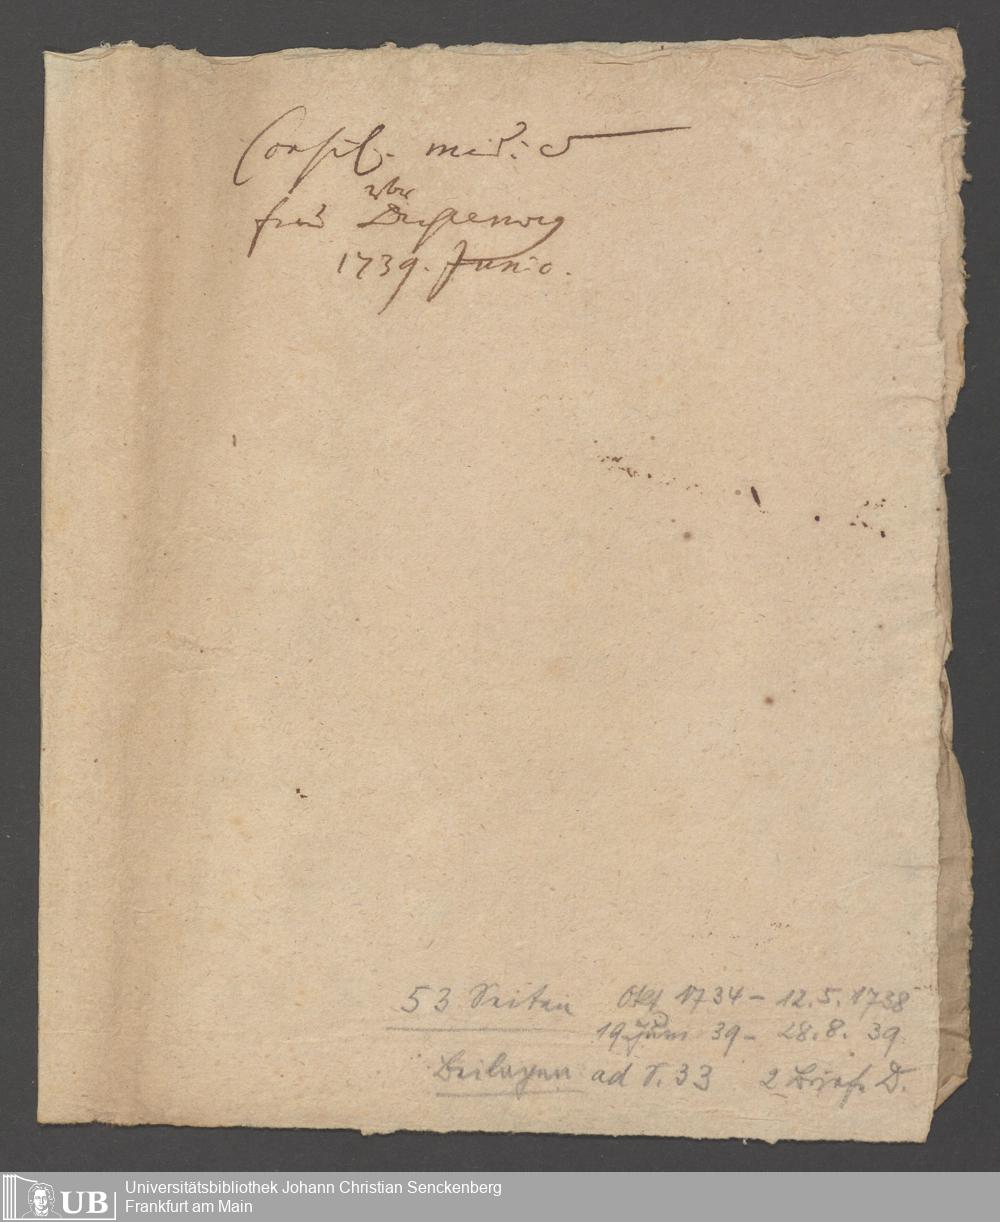 Consil. med: 
1739. Junio.
53 Seiten Okt 1734 - 12.5.1738
19. Juni 39 - 28.8.39
Beilagen ad S. 33 2 Briefe D.
UB Universitätsbibliothek Johann Christian Senckenberg
Frankfurt am Main